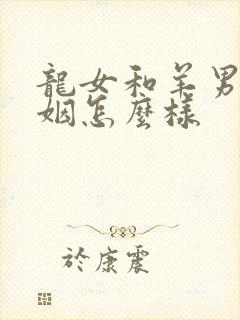 龍女和羊男
姻怎麼樣
於康震